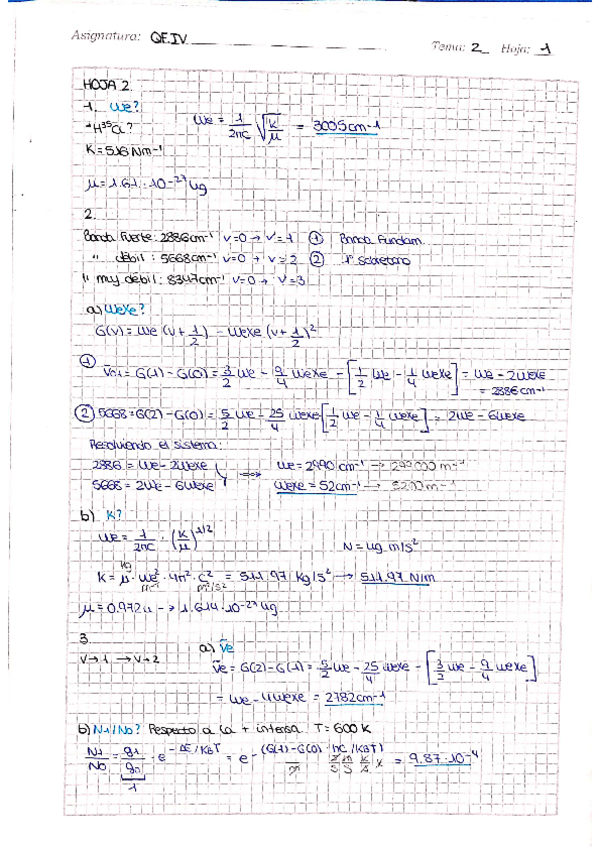 Asignatura: QF.IV. Tema: 2 Hoja: 1
HOJA 2.
1. We?
¹H³⁵Cl?
We = 1/2πc √(K/μ) = 3005cm-1
K = 516 Nm-1
μ = 1.61 · 10-27 ug
2.
Banda Fuerte: 2886cm-1 v=0 → v'=1 ① Banda Fundam.
" débil: 5668cm-1 v=0 → v=2 ② 1º Sobretono
" muy débil: 8347cm-1 v=0 → v=3
a) Wexe?
G(v) = We (v + 1/2) - Wexe (v + 1/2)²
① ν̄0→1 = G(1) - G(0) = 3/2 We - 9/4 Wexe - [1/2 We - 1/4 Wexe] = We - 2Wexe
= 2886cm-1
② 5668 = G(2) - G(0) = 5/2 We - 25/4 Wexe [1/2 We - 1/4 Wexe] = 2We - 6Wexe
Resolviendo el sistema:
2886 = We - 2Wexe ⟹ We = 2990 cm-1 → 299000 m-1
5668 = 2We - 6Wexe Wexe = 52cm-1 → 5200 m-1
b) K?
We = 1/2πc · (K/μ)^1/2
N = ug.m/s²
K = μ · We² · 4π² · c² = 511.97 kg/s² → 511.97 N/m
μ = 0.972u → 1.614·10-27 ug
3.
a) ν̄e
v→1 → v→2
ν̄e = G(2) - G(1) = 5/2 We - 25/4 Wexe - [3/2 We - 9/4 Wexe]
= We - 4Wexe = 2782cm-1
b) N1/N0? Respecto a la + intensa. T = 600K
N1/N0 = g1/g0 · e - ΔE/KBT = e - (G(1) - G(0) · hc /KBT) = 9.87·10-4
1